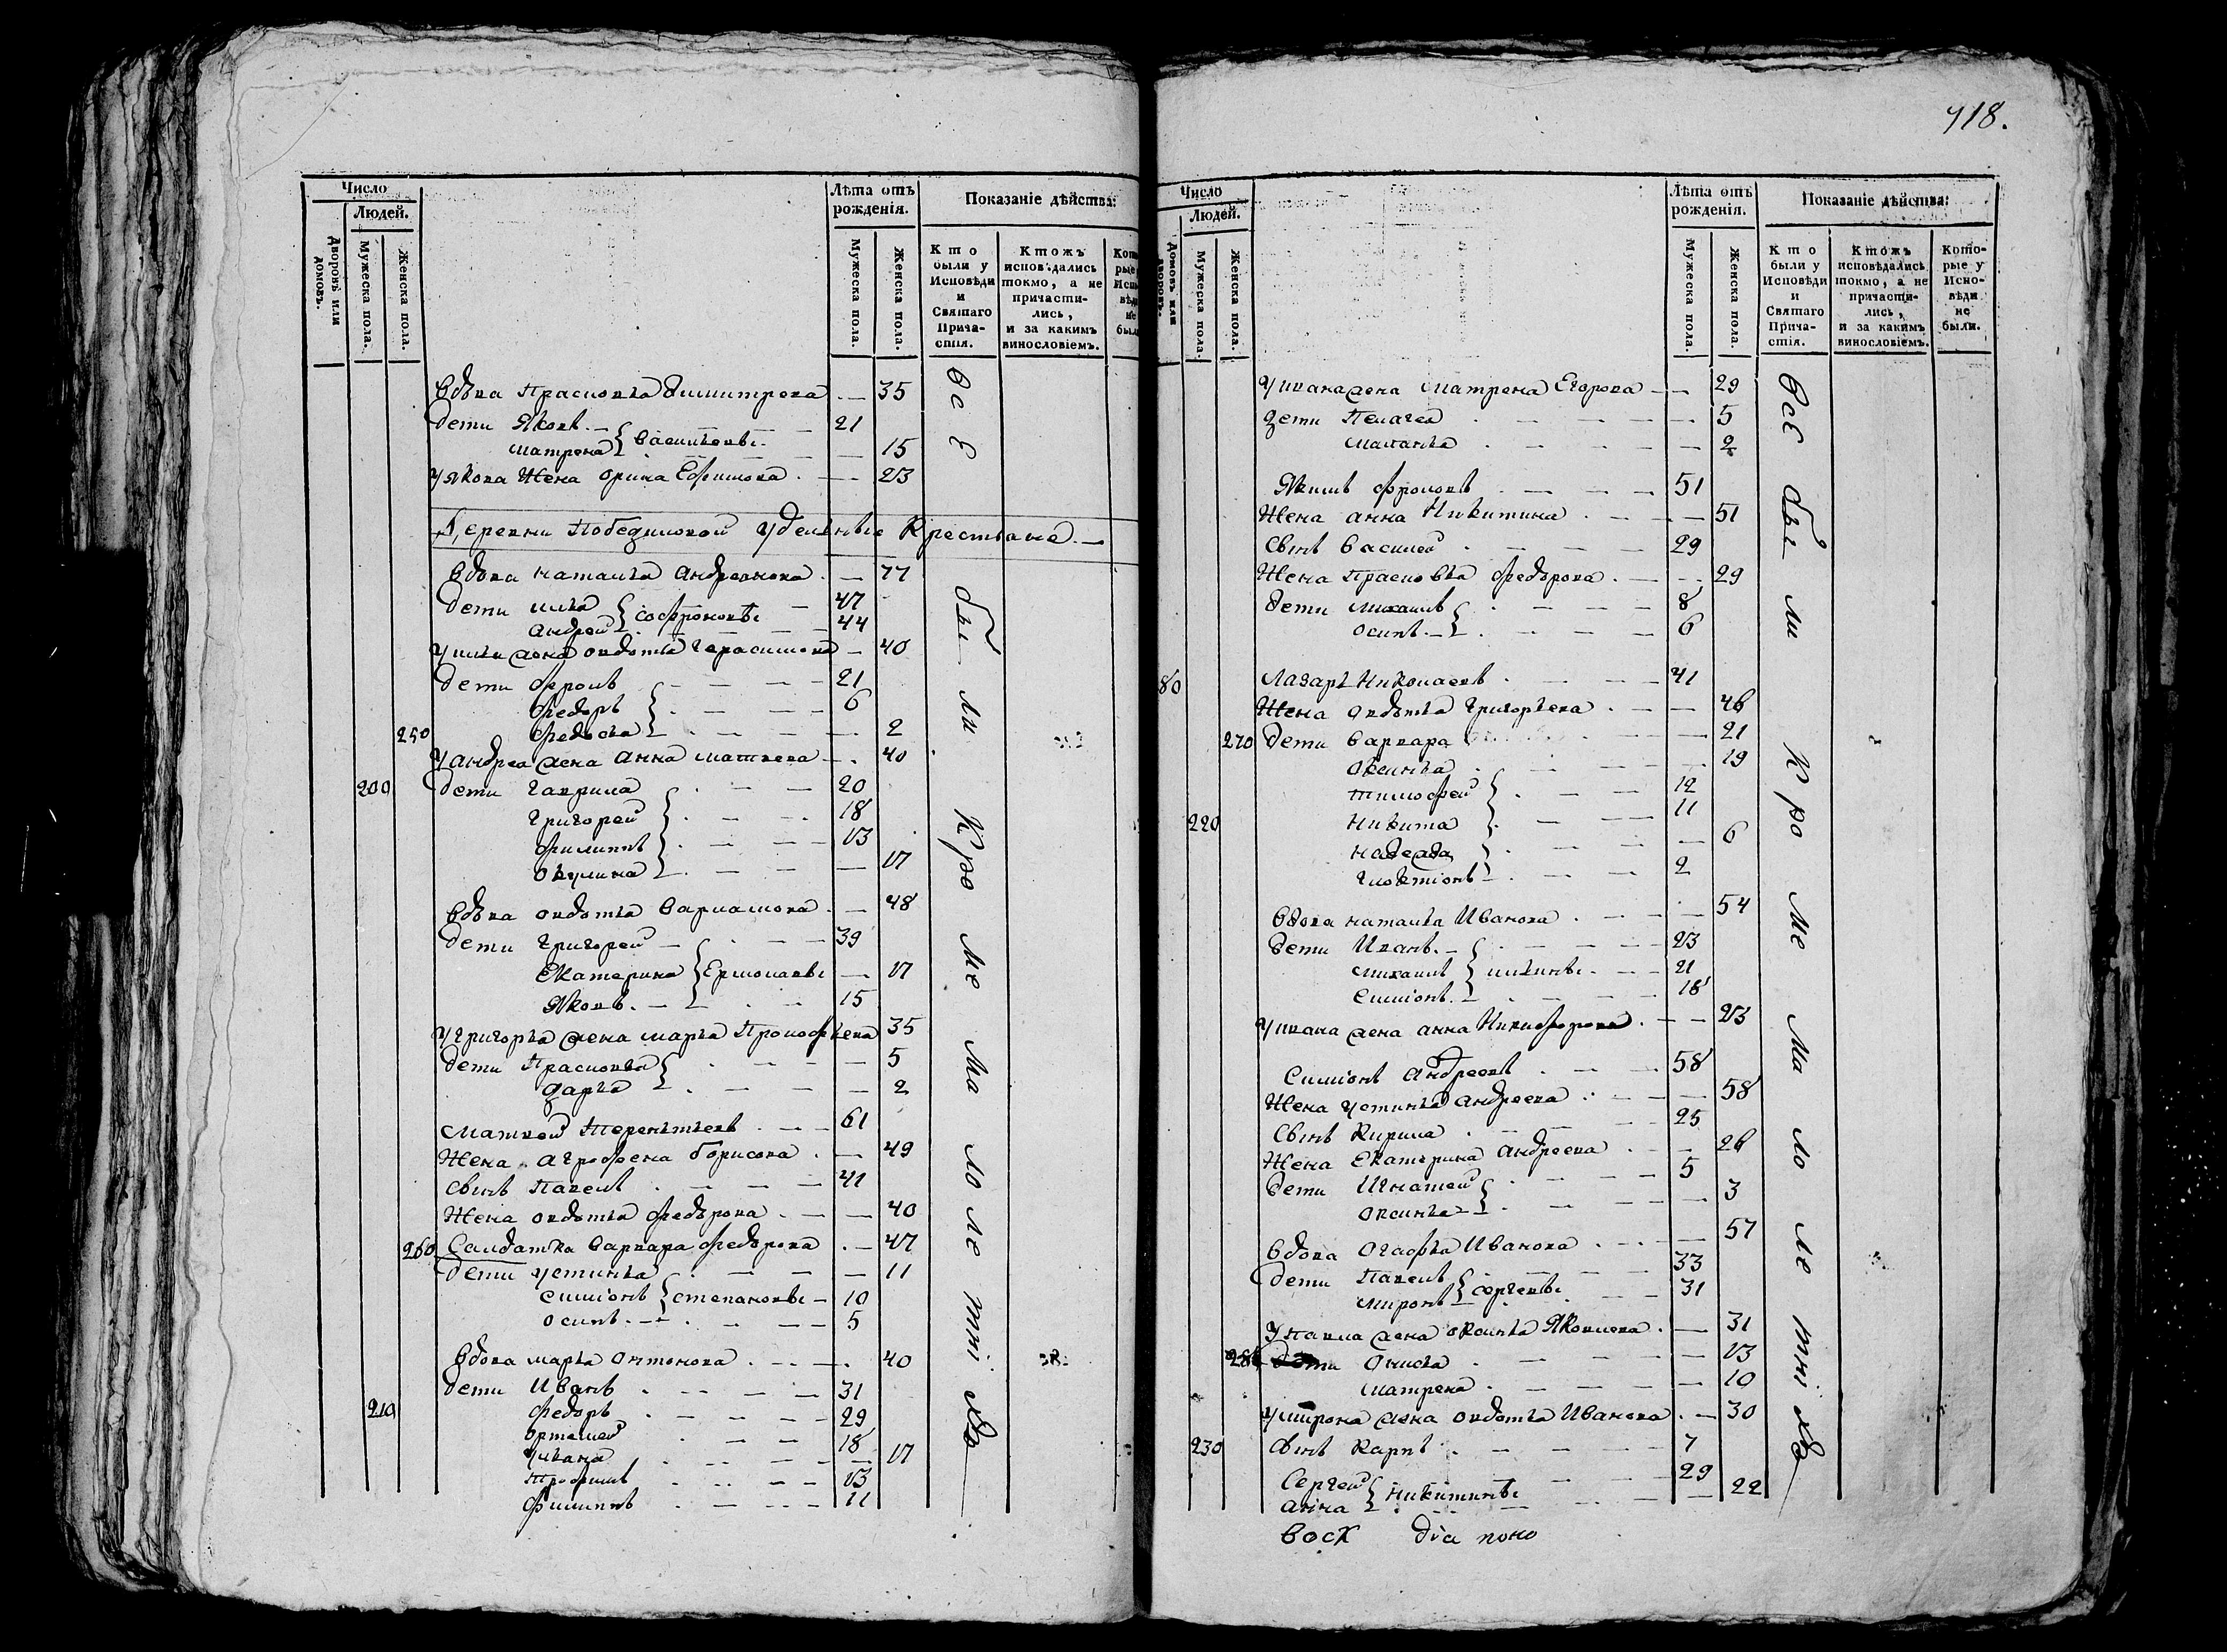 Число
Людей.
Дворовъ или домовъ.
Мужеска пола.
Женска пола.
Лѣта отъ рожденія.
Мужеска пола.
Женска пола.
Показаніе дѣйства:
Кто были у Исповѣди и Святаго Причастія.
Ктожъ исповѣдались токмо, а не причастились, и за какимъ винословіемъ.
Вдова Прасковья Димитрева — 35
дети Яковъ 21
Матрена } Васильевы — 15
У Якова Жена Орина Ефимова — 23
Деревни Победиловой Удельные Крестьяне
Вдова Наталья Андреянова — 77
дети Илья 47
Андрей } Софроновы 44
У Ильи жена Овдотья Герасимова — 40
дети Фролъ 21
Федоръ 6
250 Федосья — 2
У Андрея жена Анна Матвеева — 40
200 дети Гаврила 20
Григорей 18
Филиппъ 13
Окулина — 17
Вдова Овдотья Варламова — 48
дети Григорей 39
Екатерина } Ермолаевы — 17
Яковъ 15
У Григорья жена Марья Прокофьева 35
дети Прасковья — 5
Дарья — 2
Матвей Терентьевъ 61
Жена Агрофена Борисова — 49
Сынъ Павелъ 41
Жена Овдотья Федорова — 40
260 Салдатка Варвара Федорова — 47
дети Устинья — 11
Симіонъ } Степановы 10
Осипъ 5
Вдова Марья Онтонова — 40
дети Иванъ 31
210 Федоръ 29
Ортемей 18
Ульяна — 17
Трофимъ 13
Филиппъ 11
Все
бы
ли
Кро
ме
ма
ло
ле
тні
хъ
718.
Число
Людей.
Домовъ или дворовъ.
Мужеска пола.
Женска пола.
Лѣта отъ рожденія.
Мужеска пола.
Женска пола.
Показаніе дѣйства:
Кто были у Исповѣди и Святаго Причастія.
Ктожъ исповѣдались токмо, а не причастились, и за какимъ винословіемъ.
Которые у Исповѣди не были.
У Ивана жена Матрена Егорова — 29
дети Пелагея — 5
Маланья — 2
Якимъ Фроловъ 51
Жена Анна Никитина — 51
Сынъ Василей 29
Жена Прасковья Федорова — 29
дети Михаилъ 8
Осипъ 6
80 Лазарь Николаевъ 41
Жена Овдотья Григорьева — 46
270 дети Варвара — 21
Оксинья — 19
Тимофей 12
220 Никита 11
Надежда — 6
Гloктіонъ 2
Вдова Наталья Иванова — 54
дети Иванъ 23
Михаилъ } Ильины 21
Симіонъ 18
У Ивана жена Анна Никифорова — 23
Симіонъ Андреевъ 58
Жена Устинья Андреева — 58
Сынъ Кирила 25
Жена Екатерина Андреева — 26
дети Игнатей 5
Оксинья — 3
Вдова Огафья Иванова — 57
дети Павелъ 33
Миронъ } Сергеевы 31
У Павла жена Оксинья Яковлева — 31
280 дети Онисья — 13
Матрена — 10
У Мирона жена Овдотья Иванова — 30
230 Сынъ Карпъ 7
Сергей 29
Анна } Никитины — 22
Все
бы
ли
Кро
ме
ма
ло
ле
тні
хъ